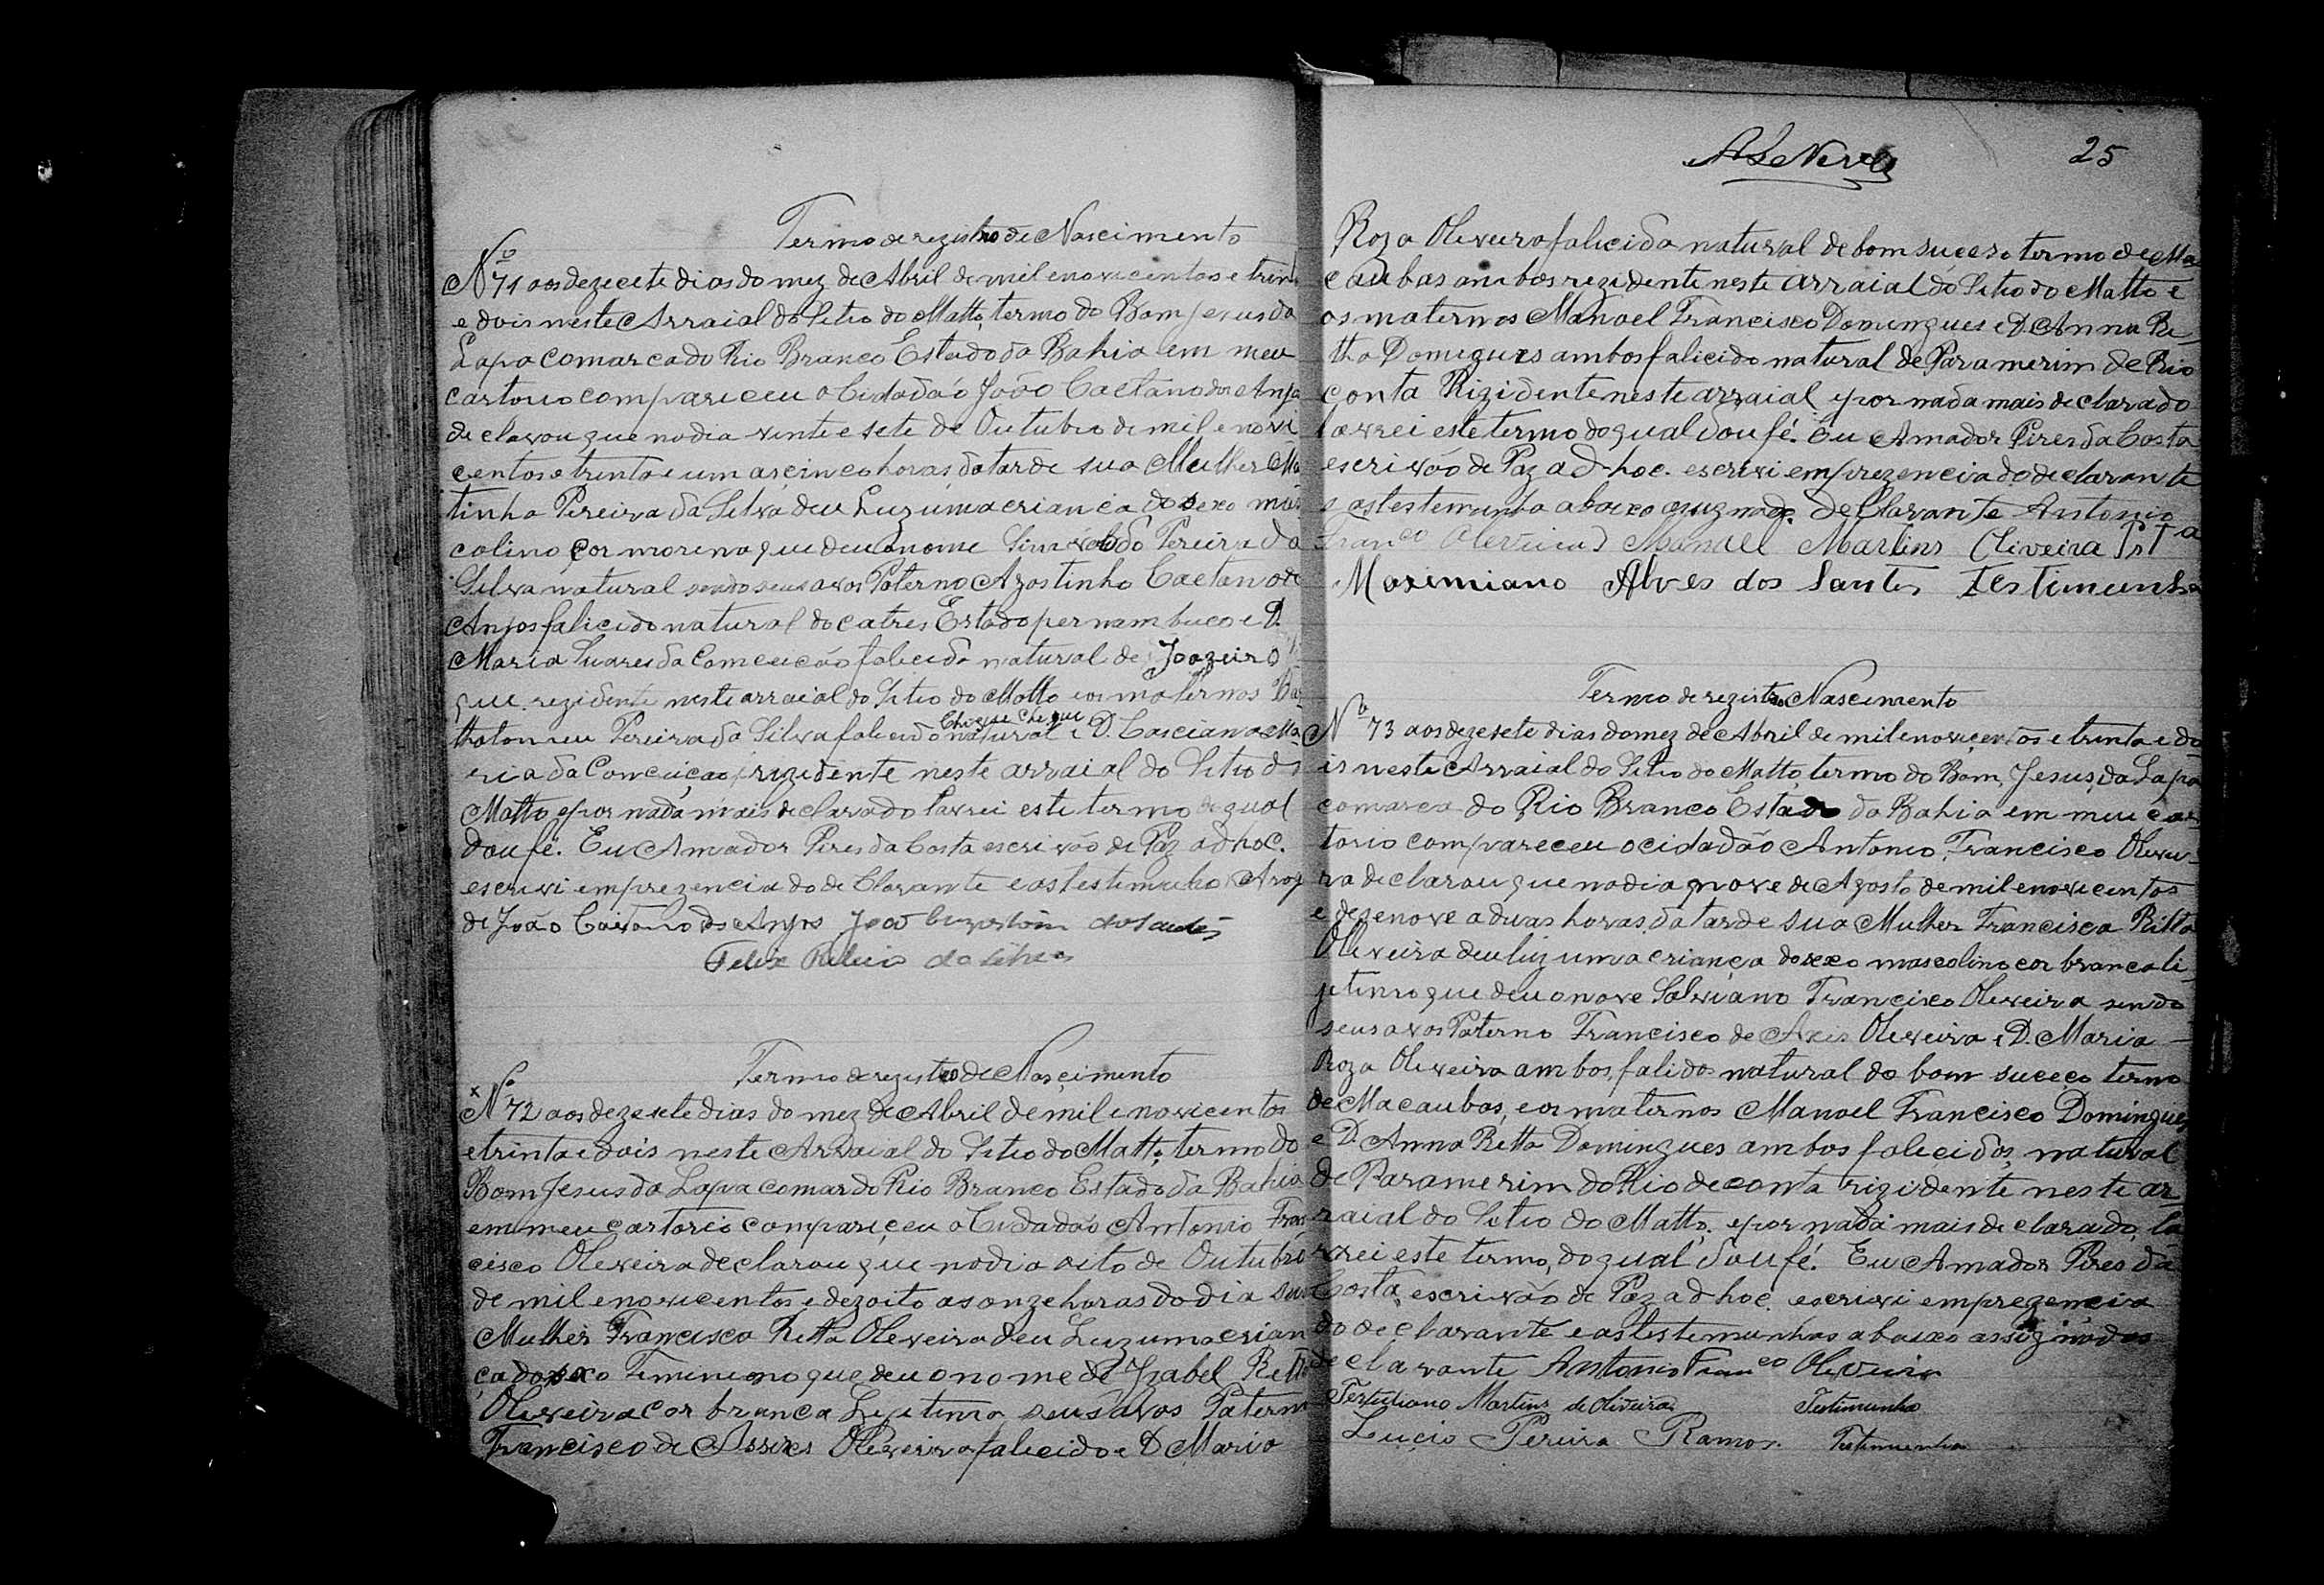 Termo de registro de Nascimento
Nº 71 aos dezecete dias do mez de Abril de mil e novicentos e trint
e dois neste Arraial do Sitio do Matto, termo do Bom Jesus da
Lapa comarca do Rio Branco Estado da Bahia em meu
cartorio compareceu o Cidadaó João Caetano dos Anjo
declarou que no dia vinte e sete de Outubro de mil e novi
centos e trinta e um as cinco horas da tarde sua Mulher Ma
tinha Pereira da Silva deu Luz uma criança do sexo mas
colino cor moreno que deu o nome Pereira da
Silva natural sendo seus avos Paterno Agostinho Caetano
Anjos falicido natural do catres Estado pernambuco e D.
Maria Suares da Comceicão falicida natural de Joazeiro
que rezidente neste arraial do Sitio do Matto e os maternos Bar
tholomeu Pereira da Silva falicido natural Chique Chique e D. Casciana Ma
ria da Conceiçao rezidente neste arraial do Sitio do
Matto e por nada mais declarado lavrei este termo do qual
dou fé. Eu Amador Pires da Costa escrivão de Paz ad hoc.
escrevi em prezencia do declarante e as testemunho Arog
de João Caitano dos Anjos João dos Santos
Felix da Silva
Termo de registro de Nascimento
x Nº 72 aos dezesete dias do mez de Abril de mil e novicentos
e trinta e dois neste Arraial do Sitio do Matto, termo do
Bom Jesus da Lapa comar do Rio Branco Estado da Bahia
em meu cartorio compareceu o Cidadão Antonio Fran
cisco Oliveira declarou que no dia oito de Outubro
de mil e novicentos e dezoito as onze horas do dia sua
Mulher Francisca Ritta Oliveira deu Luz uma crian
ça do sexo Femineno que deu o nome de Izabel Ritta
Oliveira cor branca Legetima seus avos Paterno
Francisco de Assizes Oliveira falecido e D Maria
25
Roza Oliveira falicida natural de bom suceso termo de Ma
caubas ambos rezidente neste arraial do Sitio do Matto e
os maternos Manoel Francisco Domingues e D. Anna Ri
tha Domigues ambos falicido natural de Paramerim de Rio
conta Rizidente neste arraial e por nada mais declarado
lavrei este termo do qual dou fé. Eu Amador Pires da Costa
escrivão de Paz ad-hoc. escrivi em prezencia do declarante
e as testemunha abaixo asignado. Declarante Antonio
Franco Oliveira Manoel Martins Oliveira Tsta
Maximiano Alves dos Santos Testimunha
Termo de registro Nascimento
Nº 73 aos dezesete dias do mez de Abril de mil e novicentos e trinta e do
is neste Arraial do Sitio do Matto, termo do Bom Jesus da Lapa
comarca do Rio Branco Estado da Bahia em meu car
torio compareceu o cidadão Antonio Francisco Olivei
ra declarou que no dia nove de Agosto de mil e novicentos
e dezenove a duas horas da tarde sua Mulher Francisca Ritta
Oliveira deu luz uma criança do sexo mascolino cor branca li
jetimo que deu o nove Salviano Francisco Oliveira sendo
seus avos Paterno Francisco de Axis Oliveira e D. Maria
Roza Oliveira ambos falidos natural do bom suceço termo
de Macaubas, e os maternos Manoel Francisco Domingues
e D. Anna Ritta Domingues ambos falicidos, natural
de Paramerim do Rio de conta rizidente neste ar
raial do Sitio do Matto. e por nada mais declarado, la
vrei este termo, do qual dou fé. Eu Amador Pires da
Costa, escrivão de Paz ad hoc. escrivi em prezencia
do declarante e as testemunhas abaixo assignados
declarante Antonio Franco Oliveira
Tertuliano Martins de Oliveira Testimunha
Lucio Pereira Ramos. Testimunha